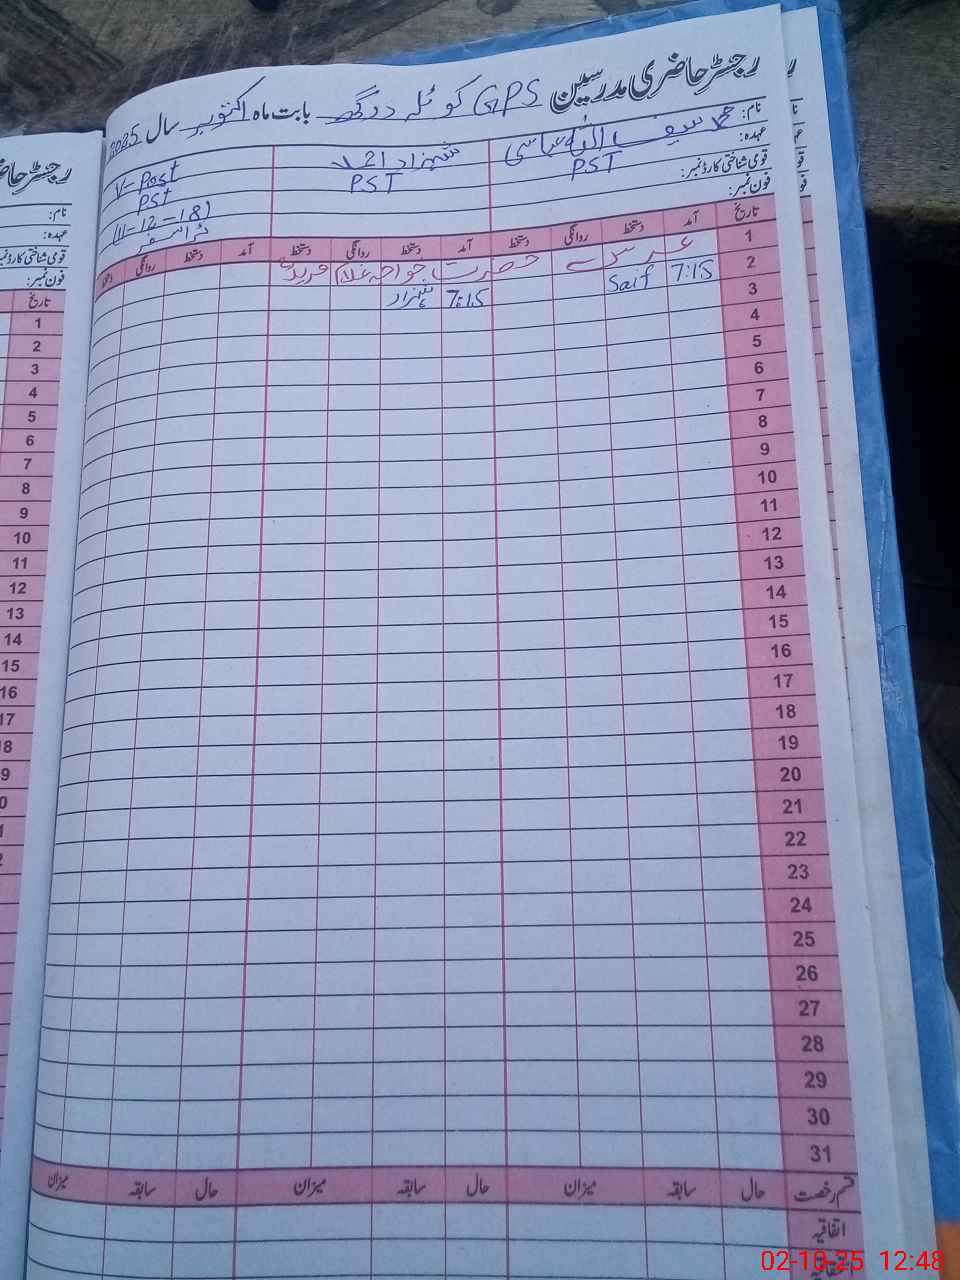 رجسٹر حاضری مدرسین GPS کوٹلہ درگھ بابت ماہ اکتوبر سال 2025
نام: محمد سیف اللہ عباسی شہزاد احمد V-Post
عہدہ: PST PST PST
قومی شناختی کارڈ نمبر: (11-12-18)
فون نمبر: ٹرانسفر
تاریخ آمد دستخط روانگی دستخط آمد دستخط روانگی دستخط آمد دستخط روانگی
1 عرس حضرت خواجہ غلام فرید
2 7:15 Saif 7:15 شہزاد
3
4
5
6
7
8
9
10
11
12
13
14
15
16
17
18
19
20
21
22
23
24
25
26
27
28
29
30
31
قسم رخصت حال سابقہ میزان حال سابقہ میزان حال سابقہ میزان
اتفاقیہ
رجسٹر حاضر
نام:
عہدہ:
قومی شناختی کارڈ نمبر:
فون نمبر:
تاریخ
1
2
3
4
5
6
7
8
9
10
11
12
13
14
15
16
17
02-10-25 12:48